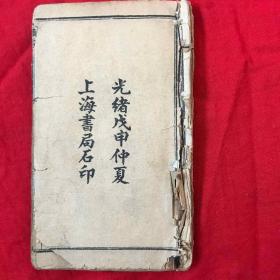 光緒戊申仲夏
上海書局石印